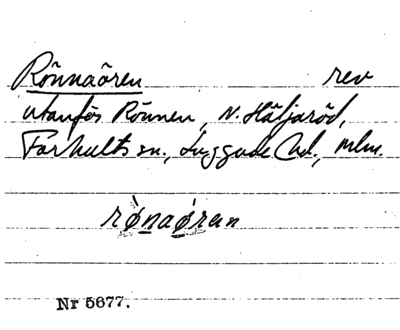 Rönnaören rev
utanför Rönnen, N. Häljaröd,
Farhults sn., Luggude hd., Mlm.
rø̀naø̀ren
Nr 5677.